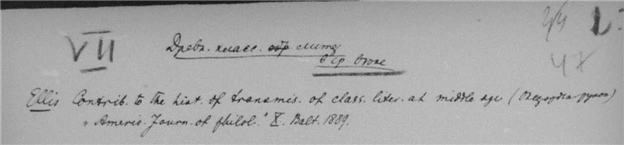 VII
Древн. класс. литер.
в ср. века
Ellis Contrib. to the hist. of transmis. of class. liter. at middle age (Оксфордск. рукоп.)
„Americ. Journ. of philol." X. Balt. 1889.
47